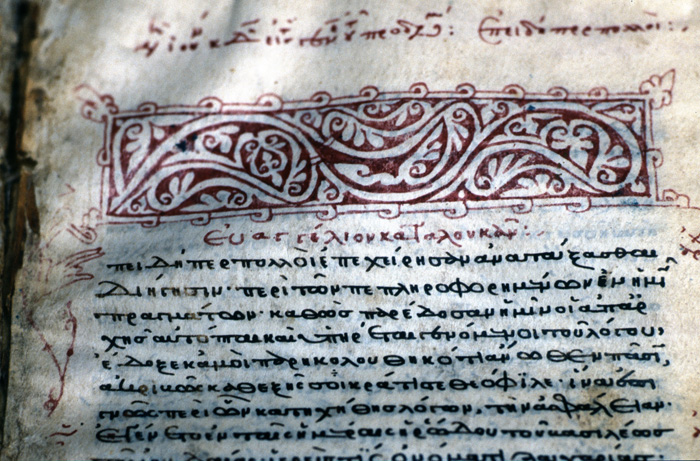 Ἐπειδὁπερ πολλοὶ:
Ευαγγέλιον κατα λουκαν:
πειδήπερ πολλοι ἐπεχείρησαν ἀναταξασθαι
Διήγησιν· περὶ τῶν πεπληροφορημένων ἐν ἡμῖ
πραγμάτων· καθὼς παρέδοσαν ἡμῖν οἱ ἀπαρ
χῆς αὐτόπται καὶ ὑπηρέται γενόμενοι τοῦ λόγου,
ἔδοξε κἀμοὶ παρηκολουθηκότι ἄνωθεν πᾶσιν,
ἀκριβῶς καθεξῆς σοι κράτιστε θεόφιλε· ἵνα ἐπι
γνῶς περὶ ὧν κατηχήθης λόγων, τὴν ἀσφάλειαν.
Ἐγένετο ἐν ταῖς ἡμέραις ἡρώδου τοῦ βασιλέως
ὀνόματι